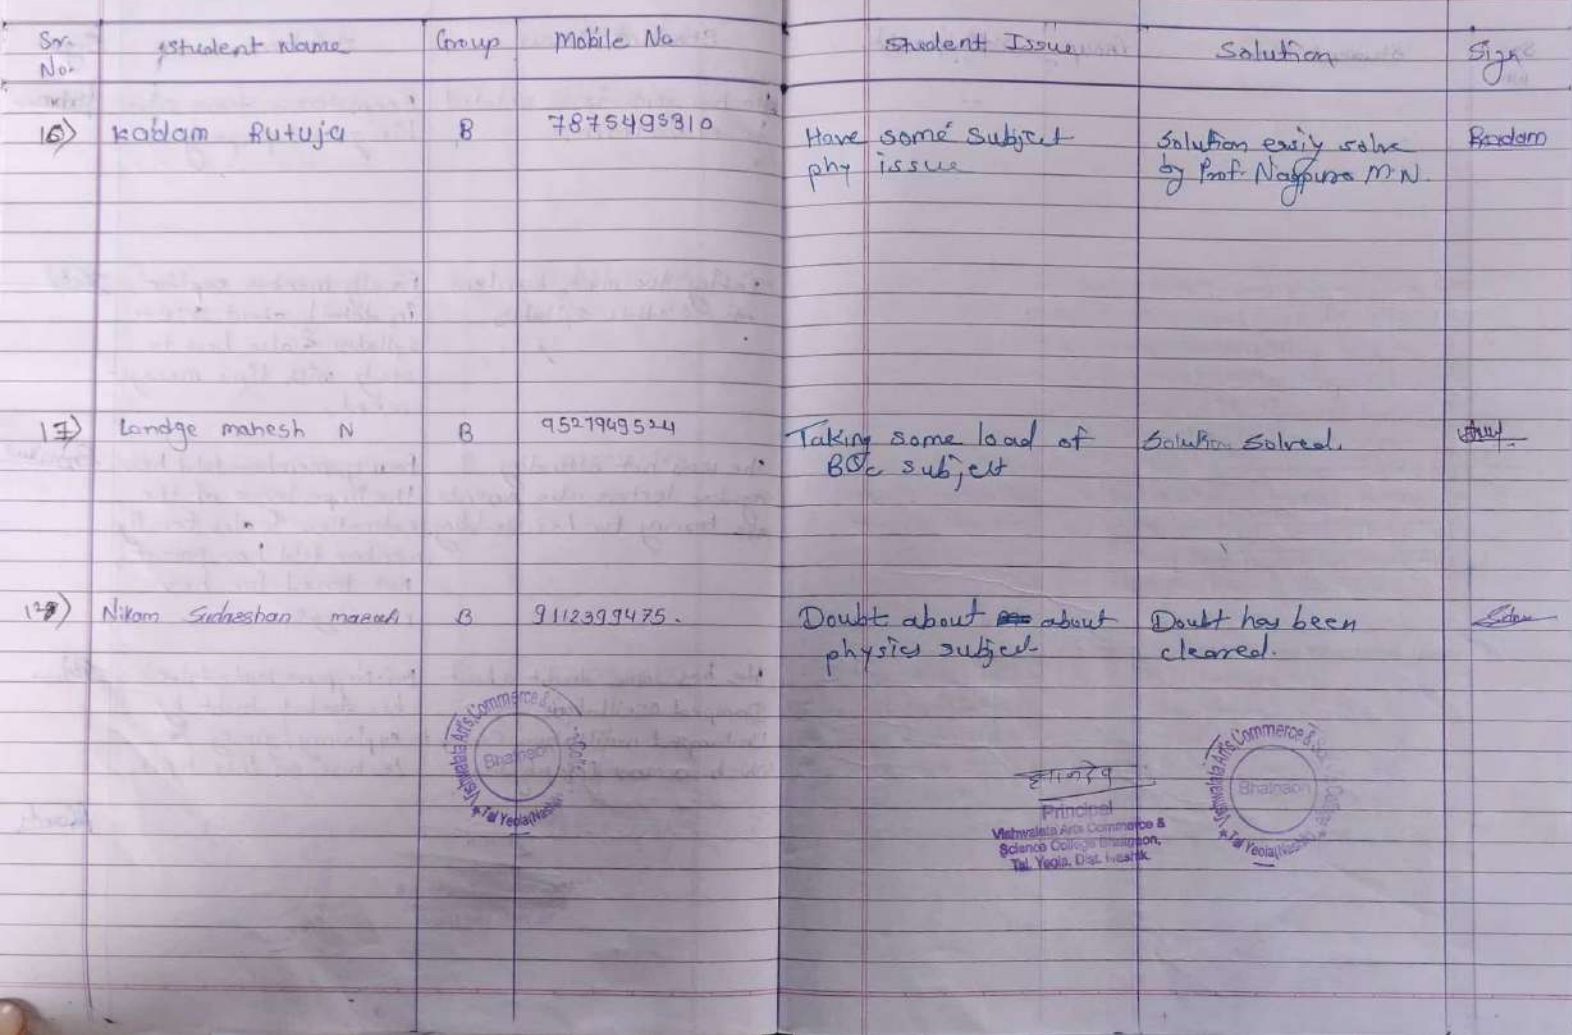 Sr. No. Student Name Group Mobile No Student Issue Solution Sign
16) Kadam Rutuja B 7875495310 Have some subject Solution easiy solve Rkadam
phy issue by Prof. Nagpure M.N.
17) Landge mahesh N B 9527949524 Taking some load of Solution Solved.
BSc subject
18) Nikam Sudneshan B 9112399475. Doubt about about Doubt has been
physics subject cleared.
Vishwalata Art's, Commerce &
Bhatgaon
Tal Yeola(Nashik)
Principal
Vishwalata Arts Commerce &
Science College Bhatgaon,
Tal. Yeola, Dist. Nashik
Vishwalata Art's Commerce &
Bhatgaon
Tal Yeola(Nashik)